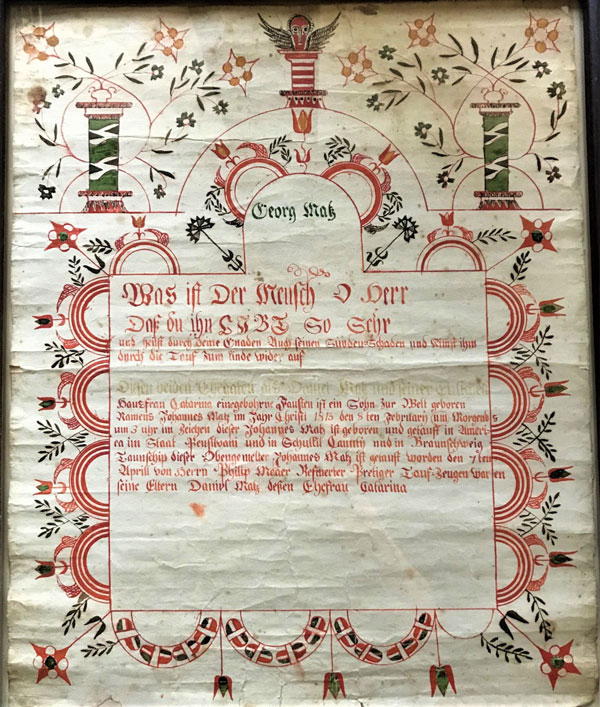 Georg Matz
Was ist Der Mensch O Herr
Daß du ihn So Sehr
und heilst durch deine Gnaden Auch seinen Sünden-Schaden und Nimst ihn
durch die Tauf zum kinde wider auf
Diesen beiden Ehegaten als Daniel Matz und seiner
Hausfrau Catarina eine gebohrne Fausten ist ein Sohn zur Welt geboren
Namens Johannes Matz im Jahr Christi 1815 den 8 ten Morgends
um 3 uhr im Zeichen dieser Johannes Matz ist geboren und getauft in Ameri-
ca im Staat und in Schulkil Caunty und in Braunschweig
Taunschip dieser Obengemelter Johannes Matz ist getauft worden den 7 ten
April von Herrn Philip Prediger Tauf-Zeugen waren
seine Eltern Daniyl Matz deßen Ehefrau Catarina